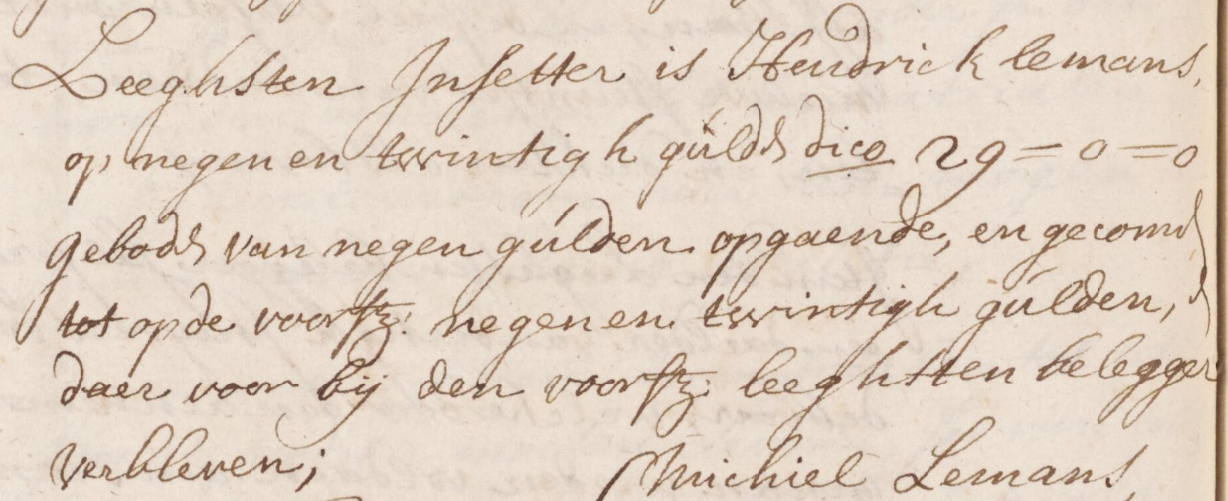 Leeghsten Insetter is Hendrick lemans,
op negen en twintigh gulds dico 29=0=0
gebods van negen gulden opgaende, en gecomd
tot op de voorsz: negen en twintigh gulden,
daer voor bij den voorsz: leeghsten belegger
verbleven; Michiel Lemans